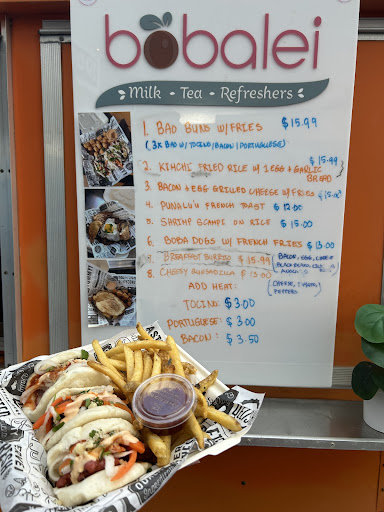 bobalei
Milk - Tea - Refreshers
1. BAO BUNS W/FRIES $15.99
(3X BAO W/ TOCINO/BACON/PORTUGUESE)
2. KIMCHI FRIED RICE W/ 1 EGG + GARLIC BREAD $15.99
3 BACON + EGG GRILLED CHEESE W/ FRIES $15.00
4 PUNALU'U FRENCH TOAST $12.00
5 SHRIMP SCAMPI ON RICE $15.00
6 BOBA DOGS W/ FRENCH FRIES $13.00
7 BREAKFAST BURRITO $15.99 (BACON, EGG,
8 CHEESY QUESADILLA $13.00 (CHEESE, PEPPERS)
ADD MEAT:
TOCINO: $3.00
PORTUGUESE: $3.00
BACON: $3.50